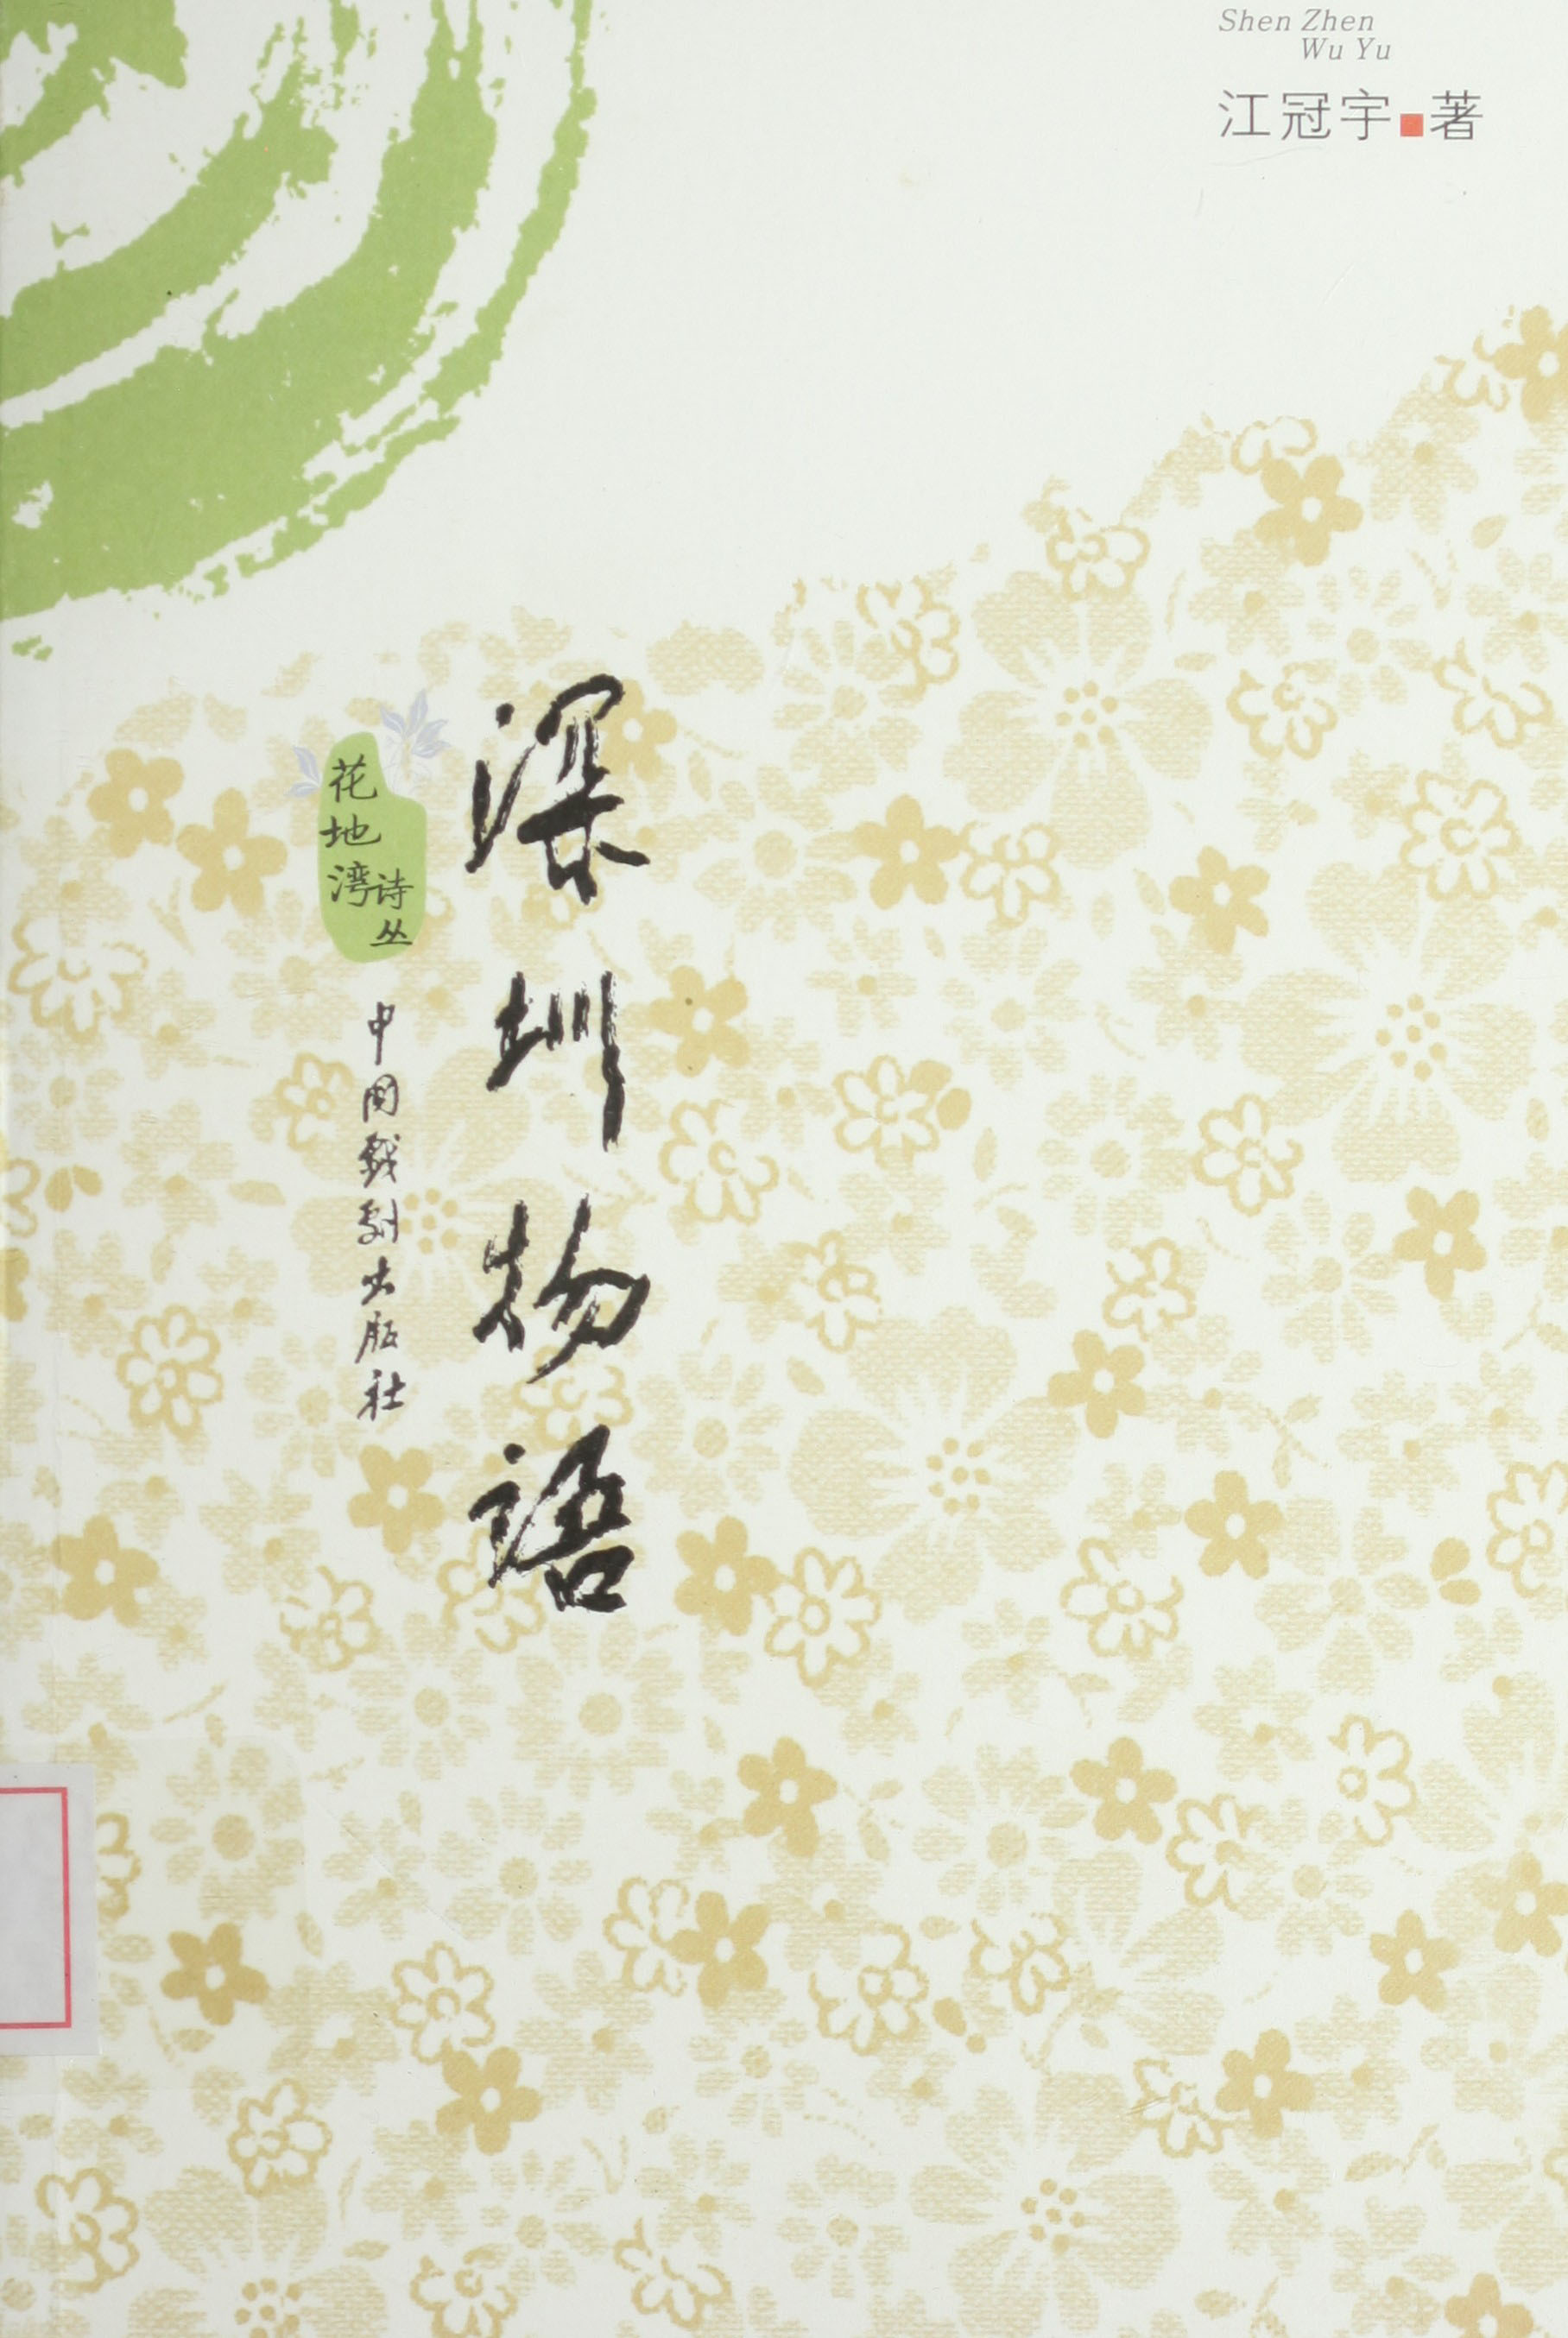 Shen Zhen
Wu Yu
江冠宇■著
深圳物語
花地湾
诗丛
中国戏剧出版社